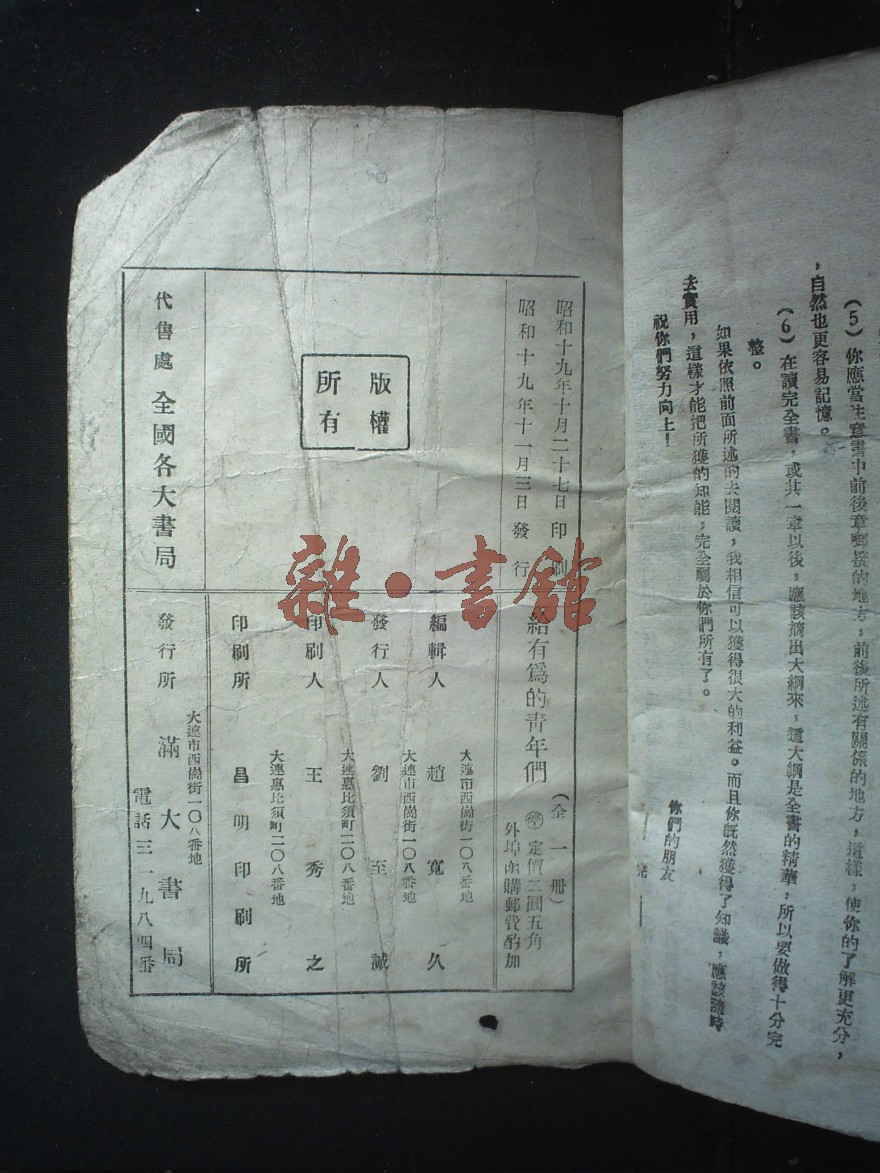 (5)你應當注意書中前後章啣接的地方,前後所述有關係的地方,這樣,使你的了解更充分,
,自然也更容易記憶。
(6)在讀完全書,或其一章以後,應該摘出大綱來,這大綱是全書的精華,所以要做得十分完
整。
如果依照前面所述的去閱讀,我相信可以獲得很大的利益。而且你既然獲得了知識,應該隨時
去實用,這樣才能把所獲的知能,完全屬於你們所有了。
祝你們努力向上!
你們的朋友
——完——
昭和十九年十月二十七日印刷
昭和十九年十一月三日發行
版權
所有
代售處 全國各大書局
給有爲的靑年們(全一冊)
㊝定價三圓五角
外埠函購郵費酌加
大連市西崗街一〇八番地
編輯人 趙寬久
大連市西崗街一〇八番地
發行人 劉至誠
大連惠比須町二〇八番地
印刷人 王秀之
大連惠比須町二〇八番地
印刷所 昌明印刷所
大連市西崗街一〇八番地
發行所 滿大書局
電話三一九八四番
雜·書館